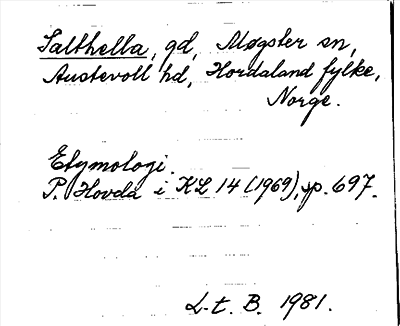 Salthella, gd, Møgster sn,
Austevoll hd, Hordaland fylke,
Norge.
Etymologi.
P. Hovda i KL 14 (1969), sp. 697.
L-t. B. 1981.